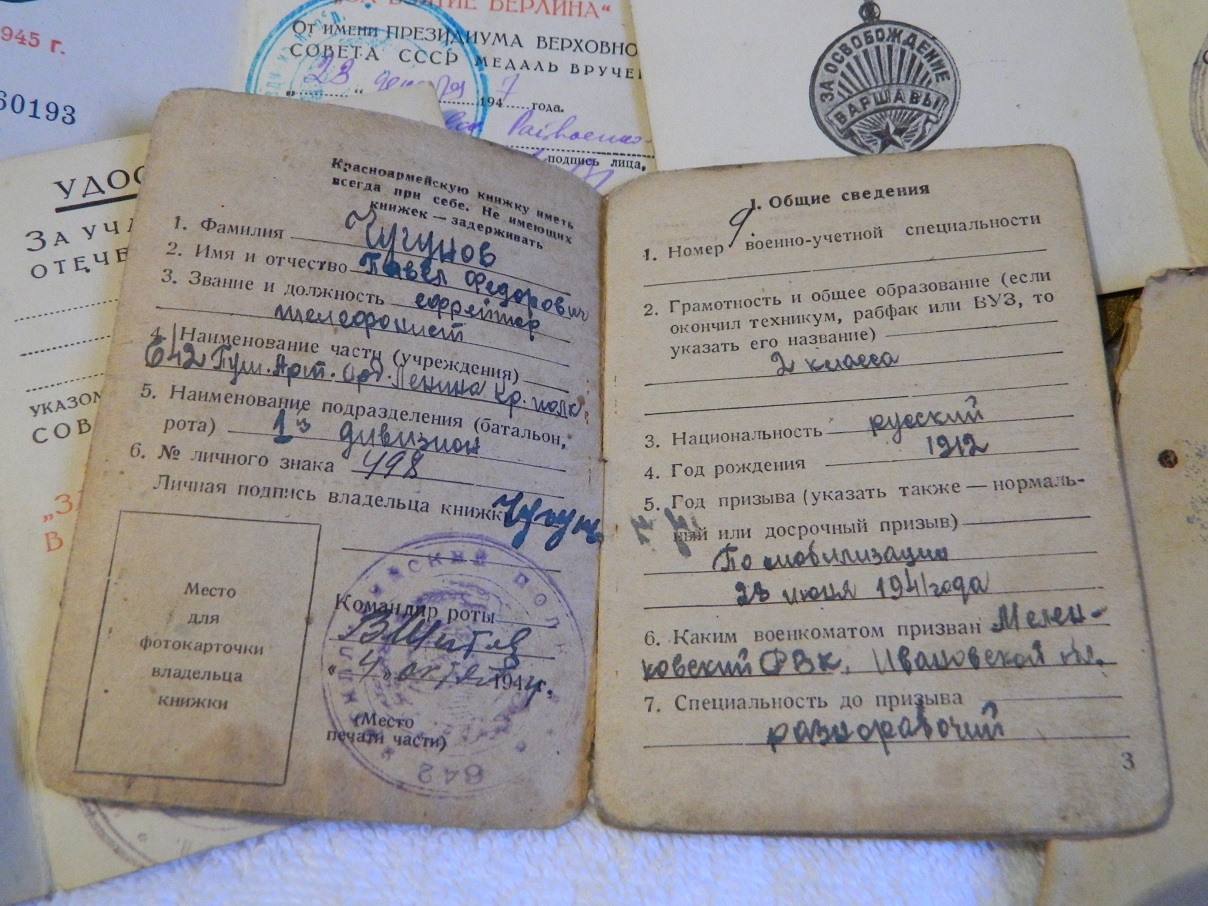 1945 г.
60193
„ЗА ВЗЯТИЕ БЕРЛИНА“
От имени ПРЕЗИДИУМА ВЕРХОВНО
СОВЕТА СССР МЕДАЛЬ ВРУЧЕ
„ 28 “ 194 7 года.
подпись лица,
ЗА ОСВОБОЖДЕНИЕ
ВАРШАВЫ
УДОС
ЗА УЧА
ОТЕЧЕ
УКАЗОМ
СОВ
„ЗА
В
Красноармейскую книжку иметь
всегда при себе. Не имеющих
книжек — задерживать
1. Фамилия Чугунов
2. Имя и отчество Павел Федорович
3. Звание и должность ефрейтор
телефонист
4. Наименование части (учреждения)
642 Пуш. Арт. Орд. Ленина Кр. полк.
5. Наименование подразделения (батальон,
рота) 1й дивизион
6. № личного знака 498
Личная подпись владельца книжки Чугун
Место
для
фотокарточки
владельца
книжки
Командир роты
„ 4 “ октября 1944 г.
(Место
печати части)
642
I. Общие сведения
1. Номер военно-учетной специальности
9
2. Грамотность и общее образование (если
окончил техникум, рабфак или ВУЗ, то
указать его название)
2 класса
3. Национальность русский
4. Год рождения 1912
5. Год призыва (указать также — нормаль-
ный или досрочный призыв)
По мобилизации
23 июня 1941 года
6. Каким военкоматом призван Мелен-
ковский РВК, Ивановской обл.
7. Специальность до призыва
разнорабочий
3